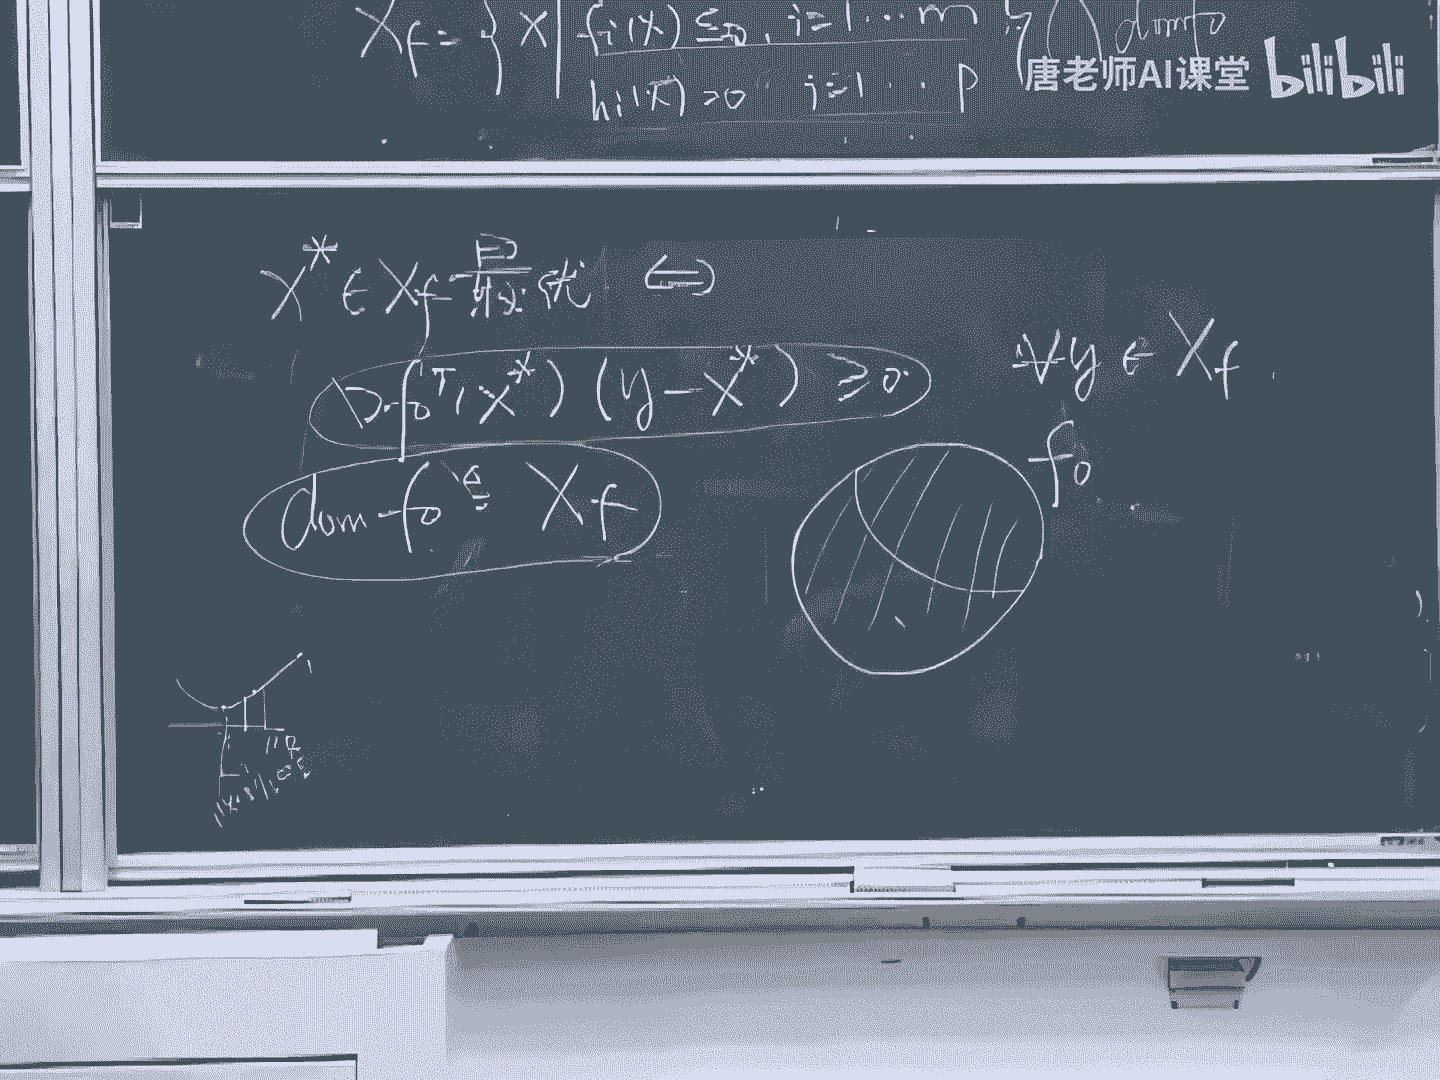 X_f = { X | f_i(X) ≤ 0, i=1…m } ∩ dom f_0
h_i(X) = 0, i=1…p
唐老师AI课堂 bilibili
X* ∈ X_f 最优 ⟺
∇f_0^T(X*) (y-X*) ≥ 0 ∀y ∈ X_f
dom f_0 X_f
f_0